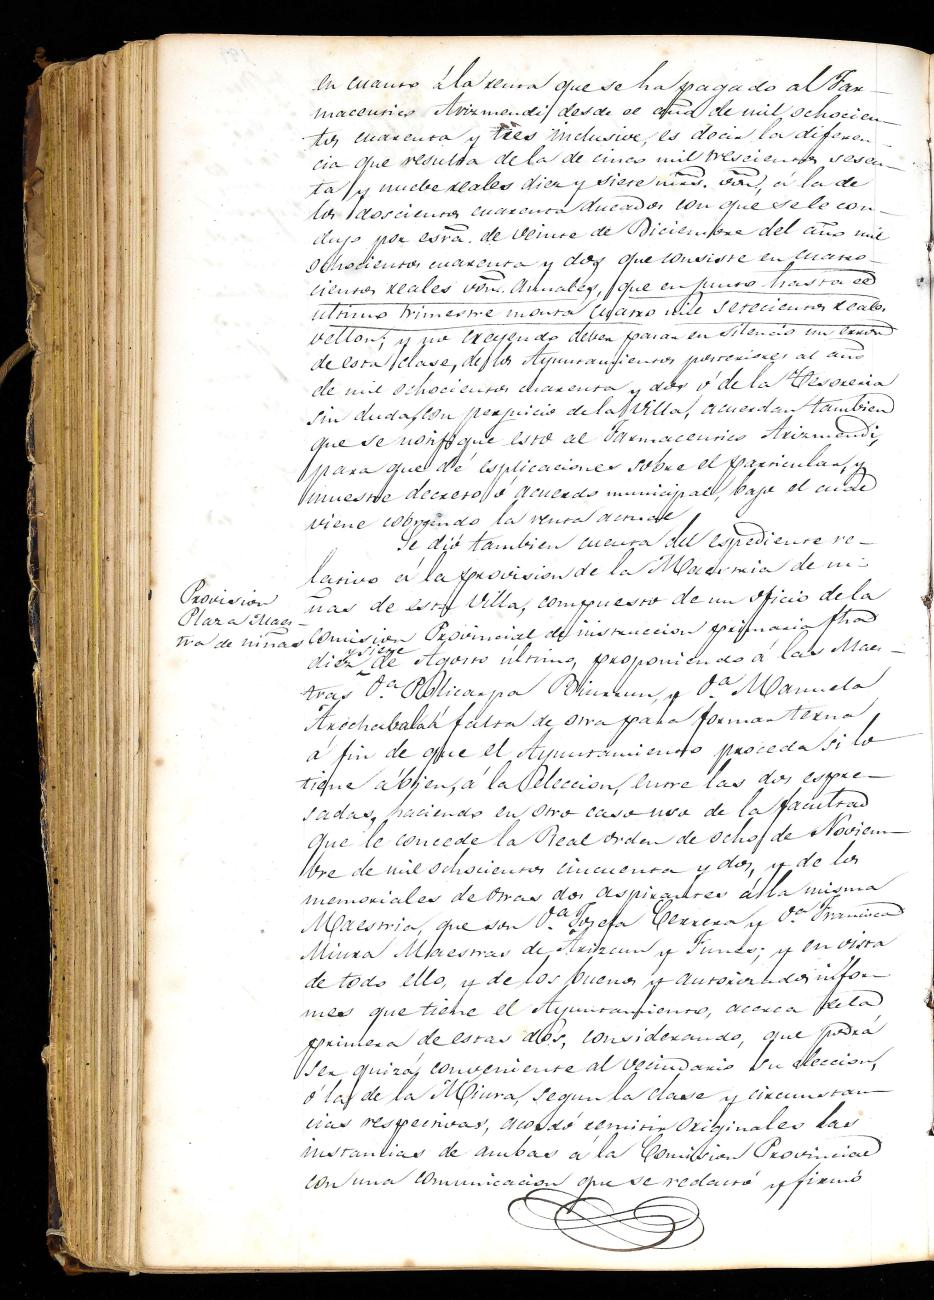 en cuanto á la renta que se ha pagado al Far-
maceutico Arizmendi, desde el año de mil ochocien-
tos cuarenta y tres inclusive, es decir la diferen-
cia que resulta de la de cinco mil trescientos sesen-
ta y nuebe reales diez y siete mrs. von, á la de
los doscientos cuarenta ducados con que se le con-
dujo por esra. de veinte de Diciembre del año mil
ochocientos cuarenta y dos que consiste en cuatro-
cientos reales von. annales, que en punto hasta el
ultimo trimestre monta cuatro mil setecientos reales
vellon; y no creyendo deber pasar en silencio un error
de esta clase, de los Ayuntamientos posteriores al año
de mil ochocientos cuarenta y dos ó de la Tesoreria
sin duda, con perjuicio de la Villa, acuerdan tambien
que se notifique esto al Farmaceutico Arizmendi,
para que dé esplicaciones sobre el particular, y
muestre decreto ó acuerdo municipal, bajo el cual
viene cobrando la renta actual
Se dió tambien cuenta del espediente re-
lativo á la provision de la Maestria de ni-
ñas de esta Villa, compuesto de un oficio de la
Provision
Plaza Maes-
tra de niñas
Comision Provincial de instruccion primaria fhad
diez y siete de Agosto último, proponiendo á las Maes-
tras D.a Policarpa Brunzun, y D.a Manuela
Arechabala á falta de otra para formar terna
á fin de que el Ayuntamiento proceda si lo
tiene á bien, á la Eleccion, entre las dos espre-
sadas, haciendo en otro caso uso de la facultad
que le concede la Real orden de ocho de Noviem-
bre de mil ochocientos cincuenta y dos, y de los
memoriales de otras dos aspirantes á la misma
Maestria, que son D.a Josefa Herrera y D.a Francisca
Miura Maestras de Arizcun y Funes; y en vista
de todo ello, y de los buenos y autorizados infor-
mes que tiene el Ayuntamiento, acerca de la
primera de estas dós, considerando, que podrá
ser quizá, conveniente al vecindario su eleccion,
ó la de la Miura, segun la clase y circunstan-
cias respectivas, acordó remitir originales las
instancias de ambas á la Comision Provincial
con una comunicacion que se redactó y firmó